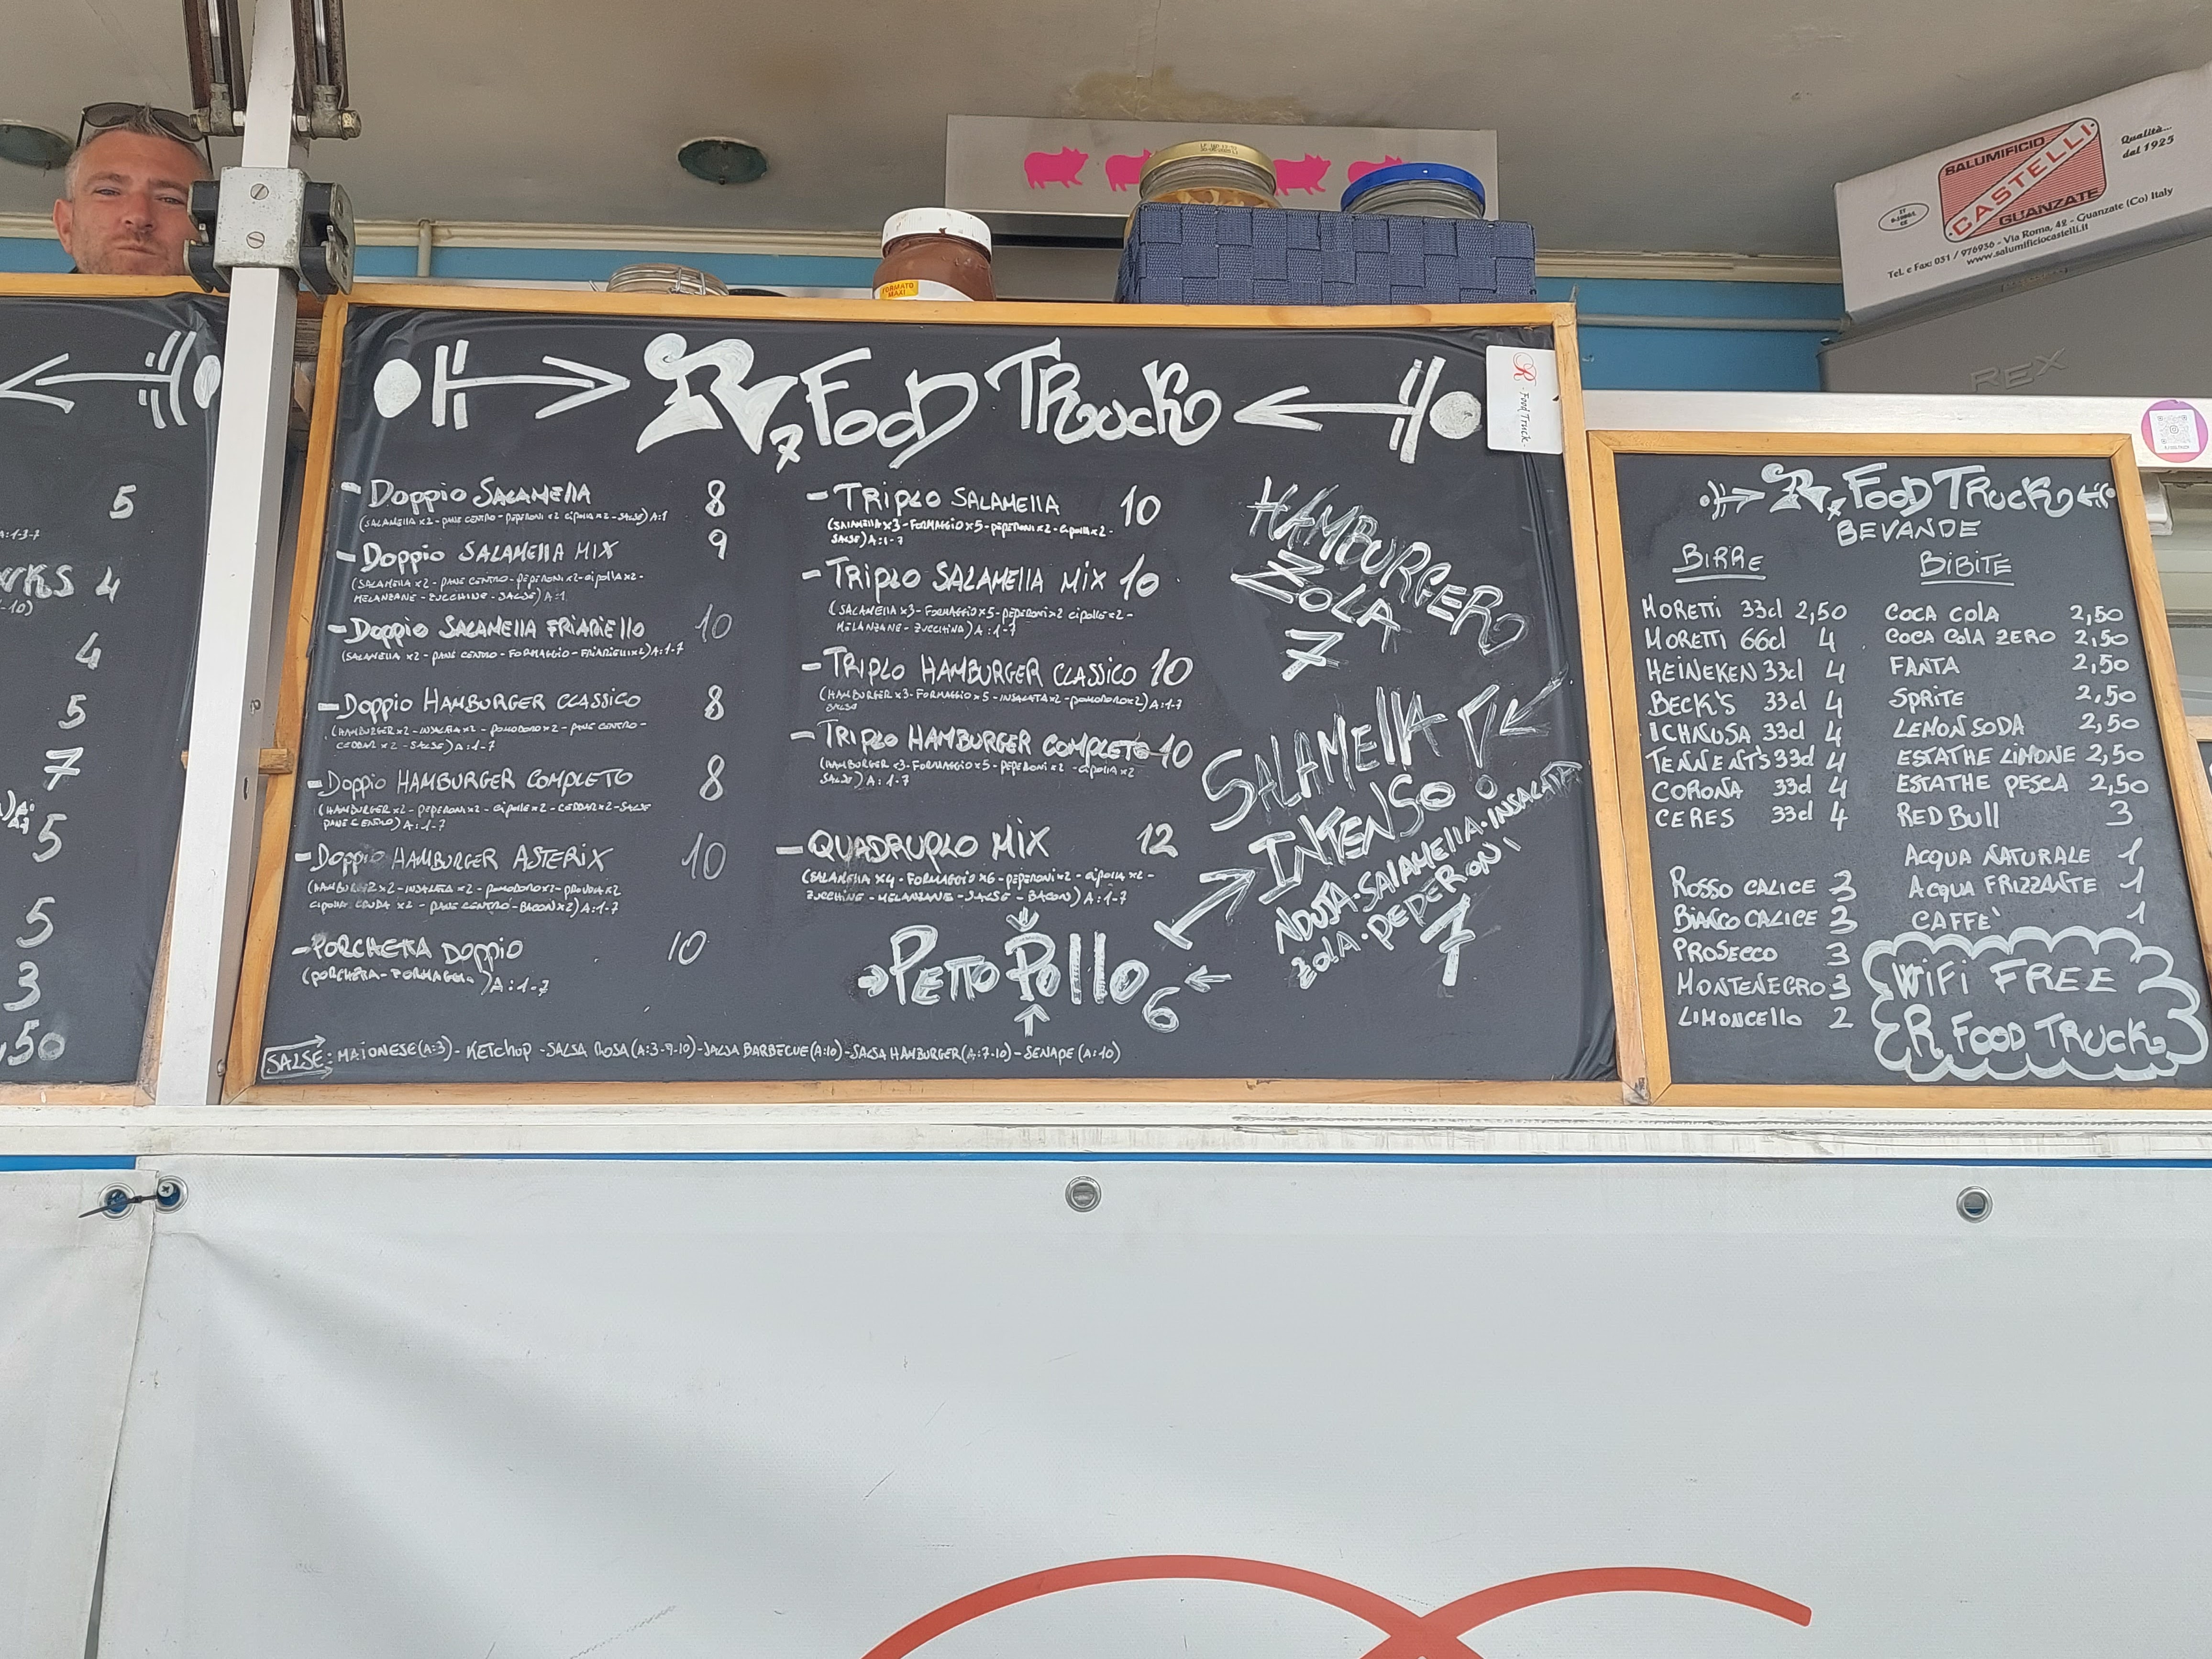 SALUMIFICIO
CASTELLI
GUANZATE
Qualità...
dal 1925
Tel. e Fax: 031 / 976936 - Via Roma, 42 - Guanzate (Co) Italy
www.salumificiocastelli.it
REX
FORMATO
MAXI
5
A:1-3-7
4
-10)
4
5
7
5
5
3
,50
R FOOD TRUCK
Food Truck
- DOPPIO SALAMELLA 8
(SALAMELLA x2 - PANE CENTRO - PEPERONI x2 CIPOLLA x2 - SALSE) A:1
- DOPPIO SALAMELLA MIX 9
(SALAMELLA x2 - PANE CENTRO - PEPERONI x2 - CIPOLLA x2 -
MELANZANE - ZUCCHINE - SALSE) A:1
- DOPPIO SALAMELLA FRIARIELLO 10
(SALAMELLA x2 - PANE CENTRO - FORMAGGIO - FRIARIELLI x2) A:1-7
- DOPPIO HAMBURGER CLASSICO 8
(HAMBURGER x2 - INSALATA x2 - POMODORO x2 - PANE CENTRO -
CEDDAR x2 - SALSE) A:1-7
- DOPPIO HAMBURGER COMPLETO 8
(HAMBURGER x2 - PEPERONI x2 - CIPOLLE x2 - CEDDAR x2 - SALSE
PANE CENTRO) A:1-7
- DOPPIO HAMBURGER ASTERIX 10
(HAMBURGER x2 - INSALATA x2 - POMODORO x2 - PROVOLA x2
CIPOLLA CRUDA x2 - PANE CENTRO - BACON x2) A:1-7
- PORCHETTA DOPPIO 10
(PORCHETTA - FORMAGGIO) A:1-7
- TRIPLO SALAMELLA 10
(SALAMELLA x3 - FORMAGGIO x5 - PEPERONI x2 - CIPOLLA x2 -
SALSE) A:1-7
- TRIPLO SALAMELLA MIX 10
(SALAMELLA x3 - FORMAGGIO x5 - PEPERONI x2 CIPOLLE x2 -
MELANZANE - ZUCCHINA) A:1-7
- TRIPLO HAMBURGER CLASSICO 10
(HAMBURGER x3 - FORMAGGIO x5 - INSALATA x2 - POMODORO x2) A:1-7
SALSE
- TRIPLO HAMBURGER COMPLETO 10
(HAMBURGER x3 - FORMAGGIO x5 - PEPERONI x2 - CIPOLLA x2
SALSE) A:1-7
- QUADRUPLO MIX 12
(SALAMELLA x4 - FORMAGGIO x6 - PEPERONI x2 - CIPOLLA x2 -
ZUCCHINE - MELANZANE - SALSE - BACON) A:1-7
PETTO POLLO 6
HAMBURGER
ZOLA
7
SALAMELLA
INTENSO!
NDUJA - SALAMELLA - INSALATA
ZOLA - PEPERONI
7
SALSE: MAIONESE (A:3) - KETCHUP - SALSA ROSA (A:3-9-10) - SALSA BARBECUE (A:10) - SALSA HAMBURGER (A:7-10) - SENAPE (A:10)
R FOOD TRUCK
BEVANDE
BIRRE
MORETTI 33cl 2,50
MORETTI 66cl 4
HEINEKEN 33cl 4
BECK'S 33cl 4
ICHNUSA 33cl 4
TENNENT'S 33cl 4
CORONA 33cl 4
CERES 33cl 4
ROSSO CALICE 3
BIANCO CALICE 3
PROSECCO 3
MONTENEGRO 3
LIMONCELLO 2
BIBITE
COCA COLA 2,50
COCA COLA ZERO 2,50
FANTA 2,50
SPRITE 2,50
LEMONSODA 2,50
ESTATHE LIMONE 2,50
ESTATHE PESCA 2,50
RED BULL 3
ACQUA NATURALE 1
ACQUA FRIZZANTE 1
CAFFE' 1
WIFI FREE
R FOOD TRUCK